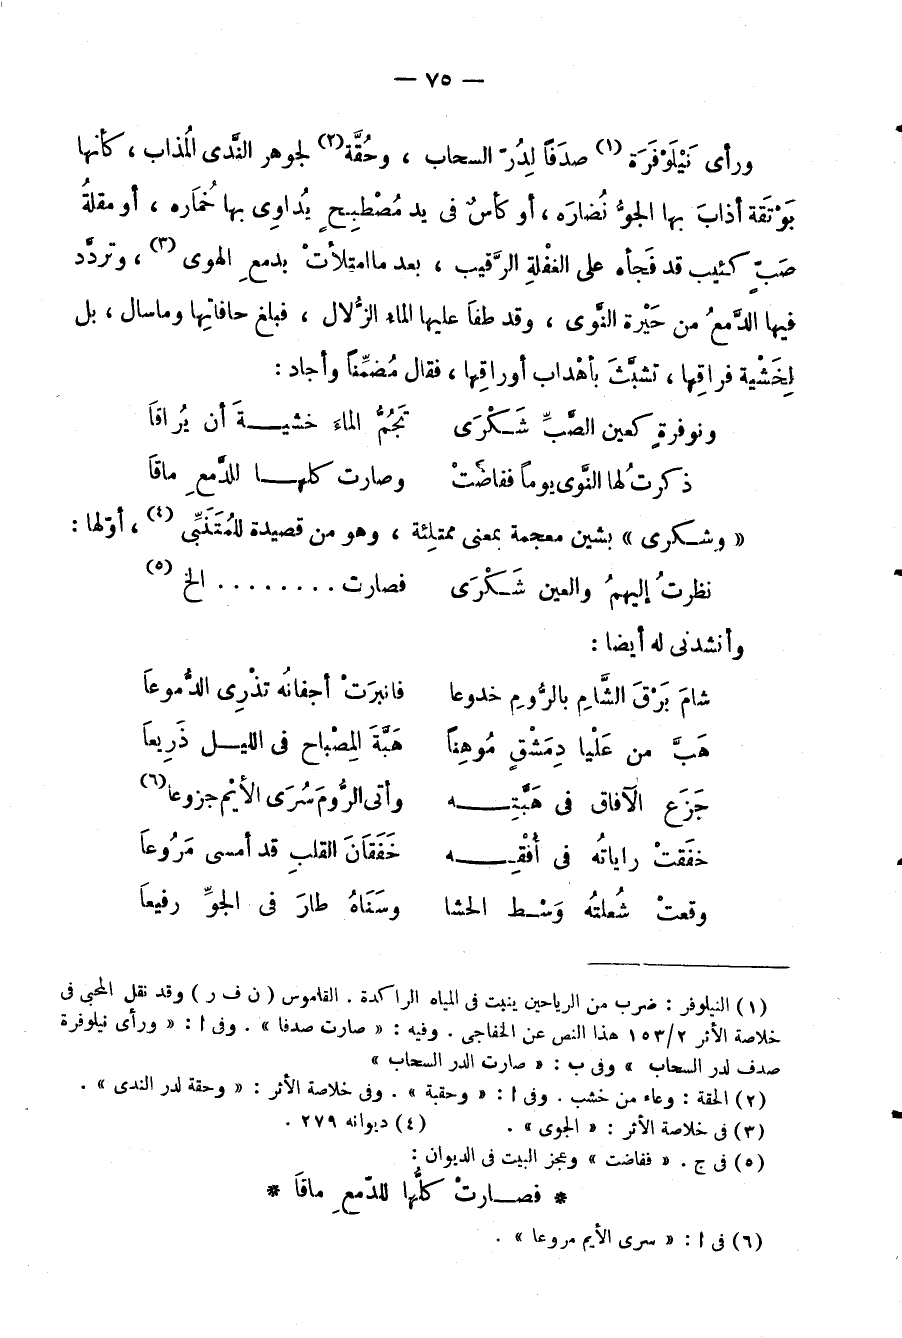 — ٧٥ —
ورأى نَيْلَوْفَرَة (١) صدَفًا لِدُرّ السحاب ، وحُقَّة(٢) لجوهر النَّدى المُذاب ، كأنها
بَوْتَقة أذابَ بها الجوُّ نُضارَه ، أو كأسٌ فى يد مُصْطبِحٍ يُداوِى بها خُمَاره ، أو مقلةُ
صَبٍّ كئيب قد فَجأه على الغفْلةِ الرَّقيب ، بعد ما امتلأتْ بدمعِ الهوى (٣) ، وتردَّد
فيها الدَّمعُ من حَيْرة النَّوى ، وقد طفَا عليها الماء الزُّلال ، فبلغ حافاتِها وماسال ، بل
لِخَشْية فراقِها ، تشبَّثَ بأهْداب أوراقِها ، فقال مُضمِّنًا وأجاد :
ونوفرةٍ كعين الصَّبِّ شَكْرَى تَجُمُّ الماءَ خشيةَ أن يُراقَا
ذكرتُ لها النَّوى يوماً ففاضَتْ وصارت كلها للدَّمعِ ماقَا
« وشكرى » بشين معجمة بمعنى ممتلِئة ، وهو من قصيدة للمُتَنَبِّى (٤) ، أوّلها :
نظرتُ إليهمُ والعين شَكْرَى فصارت ........ الخ (٥)
وأنشدنى له أيضا :
شامَ بَرْقَ الشَّامِ بالرُّومِ خدوعا فانبرَتْ أجفانُه تذْرِى الدُّموعاَ
هَبَّ من عَلْيا دِمَشْقٍ مُوهِنًا هَبَّةَ المِصْباح فى الليل ذَرِيعاَ
جَزَع الآفاق فى هَبَّتِه وأتى الرُّومَ سُرَى الأيْمِ جزوعا(٦)
خفَقتْ راياتُه فى أُفْقِه خَفَقَانَ القلبِ قد أمسى مَرُوعاَ
وقعتْ شُعلتُه وَسْط الحشا وسَنَاهُ طارَ فى الجوِّ رفيعاَ
(١) النيلوفر : ضرب من الرياحين ينبت فى المياه الراكدة . القاموس ( ن ف ر ) وقد نقل المحبى فى
خلاصة الأثر ١٥٣/٢ هذا النص عن الخفاجى . وفيه : « صارت صدفا » . وفى ا : « ورأى نيلوفرة
صدف لدر السحاب » وفى ب : « صارت الدر السحاب »
(٢) الحقة : وعاء من خشب . وفى ا : « وحقبة » . وفى خلاصة الأثر : « وحقة لدر الندى » .
(٣) فى خلاصة الأثر : « الجوى » . (٤) ديوانه ٢٧٩ .
(٥) فى ج . « ففاضت » وعجز البيت فى الديوان :
* فصارتْ كلُّها للدّمعِ ماقَا *
(٦) فى ا : « سرى الأيم مروعا » .